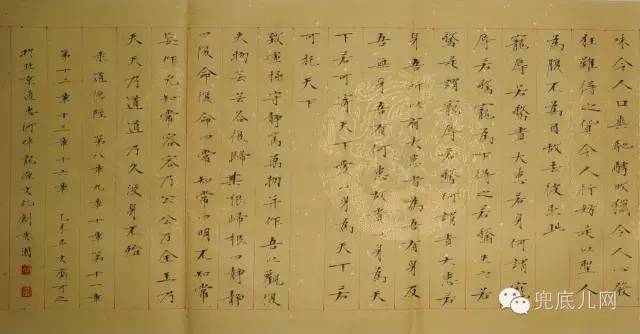 味令人口爽馳騁畋獵令人心發
狂難得之貨令人行妨是以聖人
為腹不為目故去彼取此
寵辱若驚貴大患若身何謂寵
辱若驚寵為下得之若驚失之若
驚是謂寵辱若驚何謂貴大患若
身吾所以有大患者為吾有身及
吾無身吾有何患故貴以身為天
下若可寄天下愛以身為天下若
可托天下
致虛極守靜篤萬物并作吾以觀復
夫物芸芸各復歸其根歸根曰靜靜
曰復命復命曰常知常曰明不知常
妄作凶知常容容乃公公乃全王乃
天天乃道道乃久沒身不殆
道德經 第八章九章十章第十一章
第十二章十三章十六章 乙未
於北京通惠河畔龍源文化創意園
兜底儿网